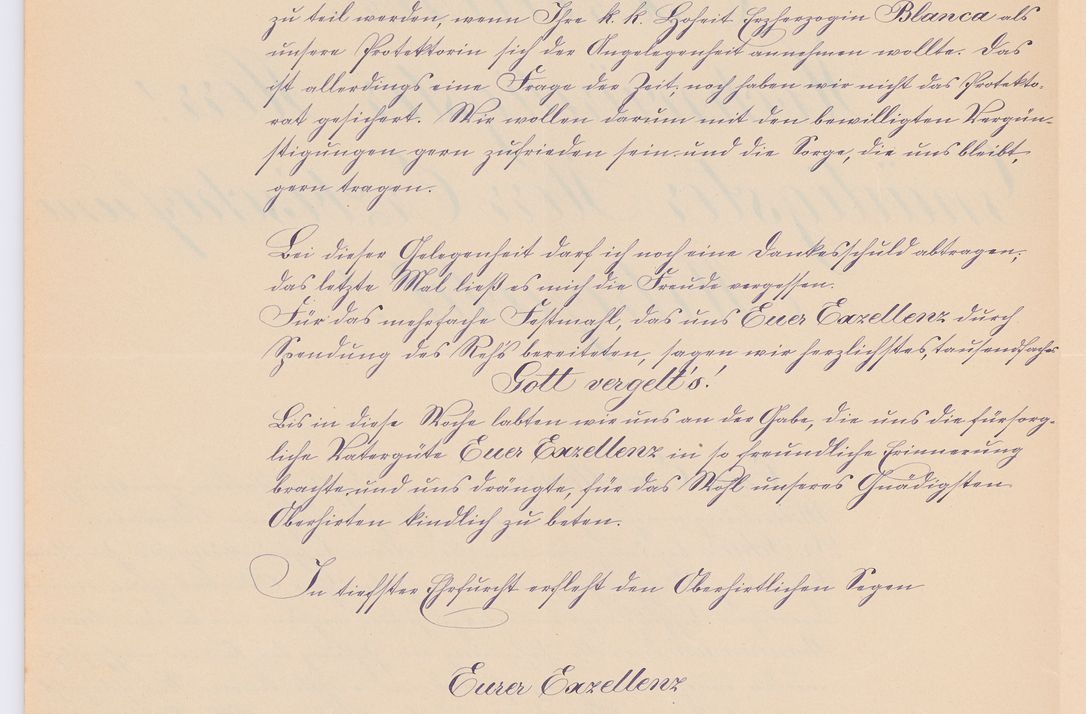 zu teil werden, wenn Ihre k. k. Hoheit Erzherzogin Blanca als
unsere Protektorin sich der Angelegenheit annehmen wollte. Das
ist allerdings eine Frage der Zeit; noch haben wir nicht das Protekto-
rat gesichert. Wir wollen darum mit den bewilligten Vergün-
stigungen gern zufrieden sein und die Sorge, die uns bleibt,
gern tragen.
Bei dieser Gelegenheit darf ich noch eine Dankesschuld abtragen;
das letzte Mal ließ es mich die Freude vergessen.
Für das mehrfache Festmahl, das uns Euer Exzellenz durch
Spendung des Reh's bereiteten, sagen wir herzlichstes, tausendfaches
Gott vergelt's!
Bis in diese Woche labten wir uns an der Gabe, die uns die fürsorg-
liche Vatergüte Euer Exzellenz in so freundliche Erinnerung
brachte und uns drängte, für das Wohl unseres Gnädigsten
Oberhirten kindlich zu beten.
In tiefster Ehrfurcht erfleht den Oberhirtlichen Segen
Eurer Exzellenz